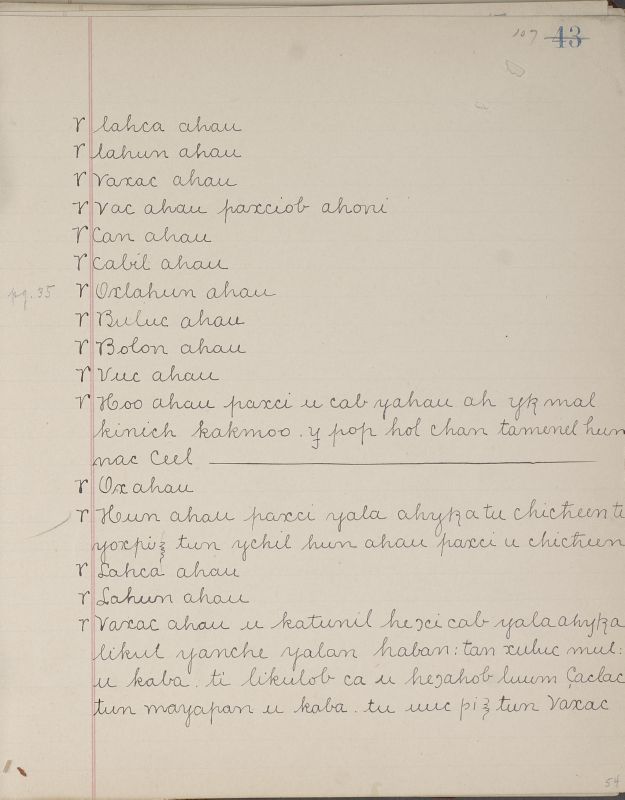 107 43
r lahca ahau
r lahun ahau
r Vaxac ahau
r Vac ahau paxciob ahoni
r Can ahau
r Cabil ahau
pg. 35 r Oxlahun ahau
r Buluc ahau
r Bolon ahau
r Vuc ahau
r Hoo ahau paxci u cab yahau ah ytz mal
kinich kakmoo . y pop hol chan tamenel hun
nac Ceel
r Ox ahau
r Hun ahau paxci yala ahytza tu chicħeen tu
yoxpiz tun ychil hun ahau paxci u chicħeen
r Lahca ahau
r Lahun ahau
r Vaxac ahau u katunil heɔci cab yala ahytza
likul yanche yalan haban : tan xuluc mul :
u kaba . ti likulob ca u heɔahob luum Çaclac
tun mayapan u kaba . tu uuc piz tun Vaxac
54